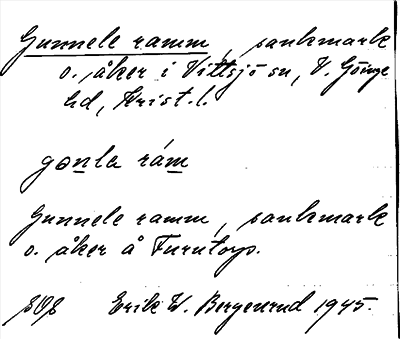 Gunnele ramm, sankmark
o. åker i Vittsjö sn, V. Göinge
hd, Krist. l.
gonla rám
Gunnele ramm, sankmark
o. åker å Furutorp.
Erik W. Bergenrud 1945.